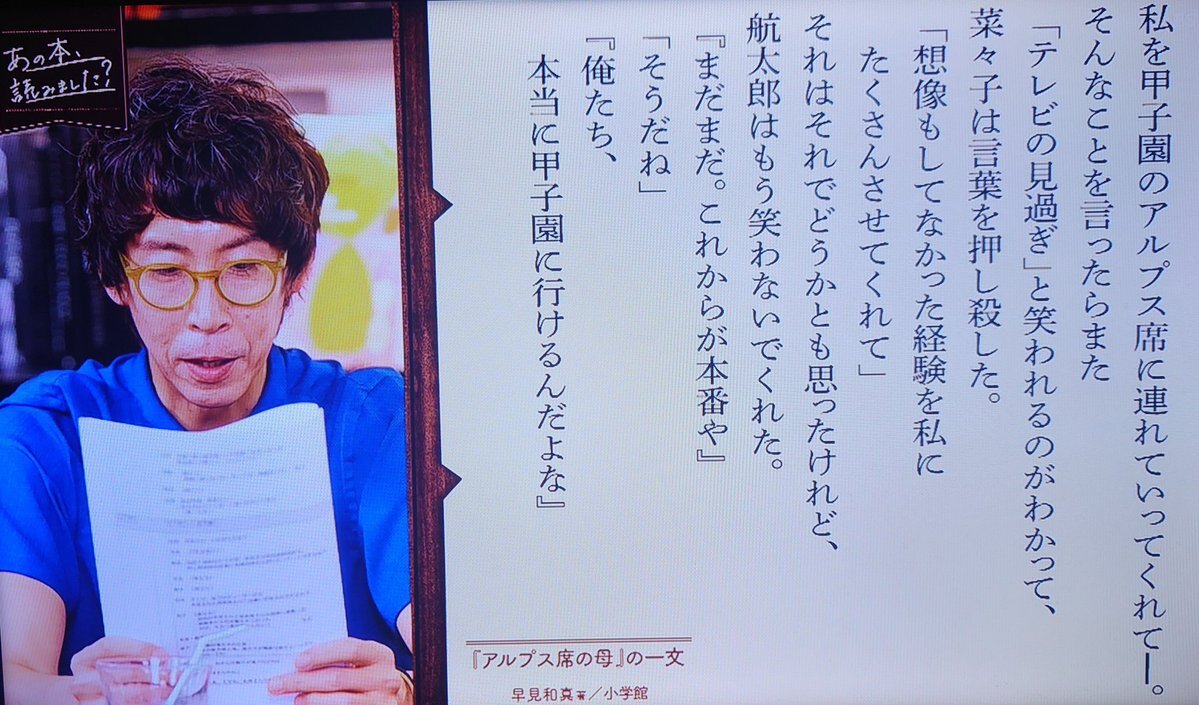 あの本、
読みました?
私を甲子園のアルプス席に連れていってくれてー。
そんなことを言ったらまた
「テレビの見過ぎ」と笑われるのがわかって、
菜々子は言葉を押し殺した。
「想像もしてなかった経験を私に
たくさんさせてくれて」
それはそれでどうかとも思ったけれど、
航太郎はもう笑わないでくれた。
『まだまだ。これからが本番や』
「そうだね」
『俺たち、
本当に甲子園に行けるんだよな』
『アルプス席の母』の一文
早見和真 著/小学館